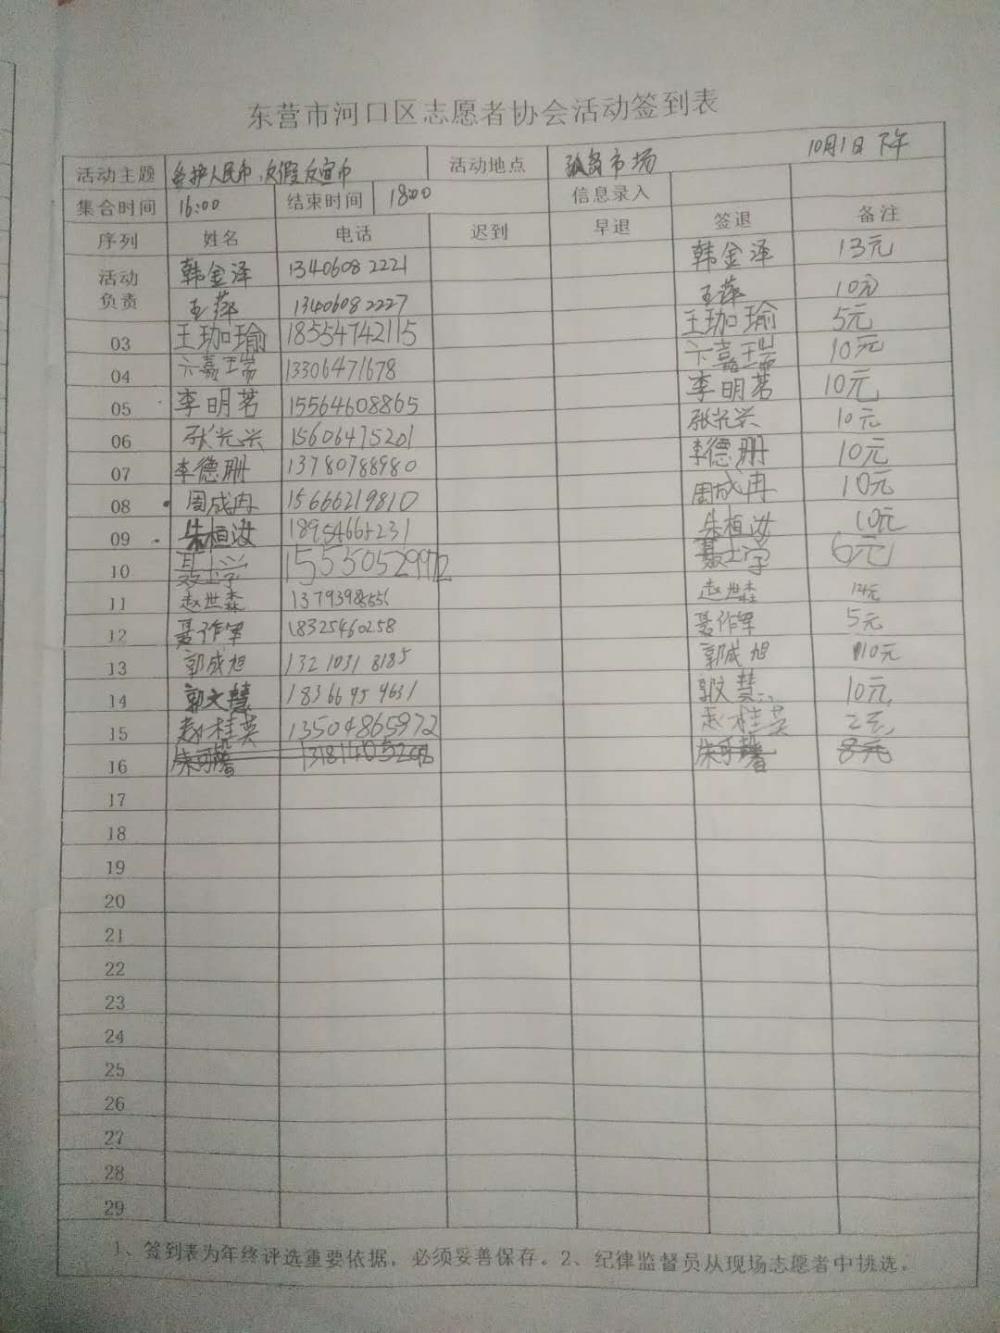 东营市河口区志愿者协会活动签到表
10月1日 下午
活动主题 爱护人民币,反假反宣币 活动地点 市场
集合时间 16:00 结束时间 18:00 信息录入
序列 姓名 电话 迟到 早退 签退 备注
活动负责 韩金泽 13406082221 韩金泽 13元
王萍 13406082227 王萍 10元
03 王珈瑜 18554742115 王珈瑜 5元
04 卞嘉瑞 13306471678 卞嘉瑞 10元
05 李明茗 15564608865 李明茗 10元
06 张光兴 15606475201 张光兴 10元
07 李德册 13780788980 李德册 10元
08 周成冉 15666219810 周成冉 10元
09 朱桓汝 18954665231 朱桓汝 10元
10 聂士学 15550529972 聂士学 6元
11 赵世森 赵世森 14元
12 聂作军 18325460258 聂作军 5元
13 郭成旭 13210318185 郭成旭 10元
14 郭文慧 18366454631 郭文慧 10元
15 赵桂英 13504865972 赵桂英 2元
16 朱可馨 朱可馨 8元
17
18
19
20
21
22
23
24
25
26
27
28
29
1、签到表为年终评选重要依据,必须妥善保存。2、纪律监督员从现场志愿者中挑选。